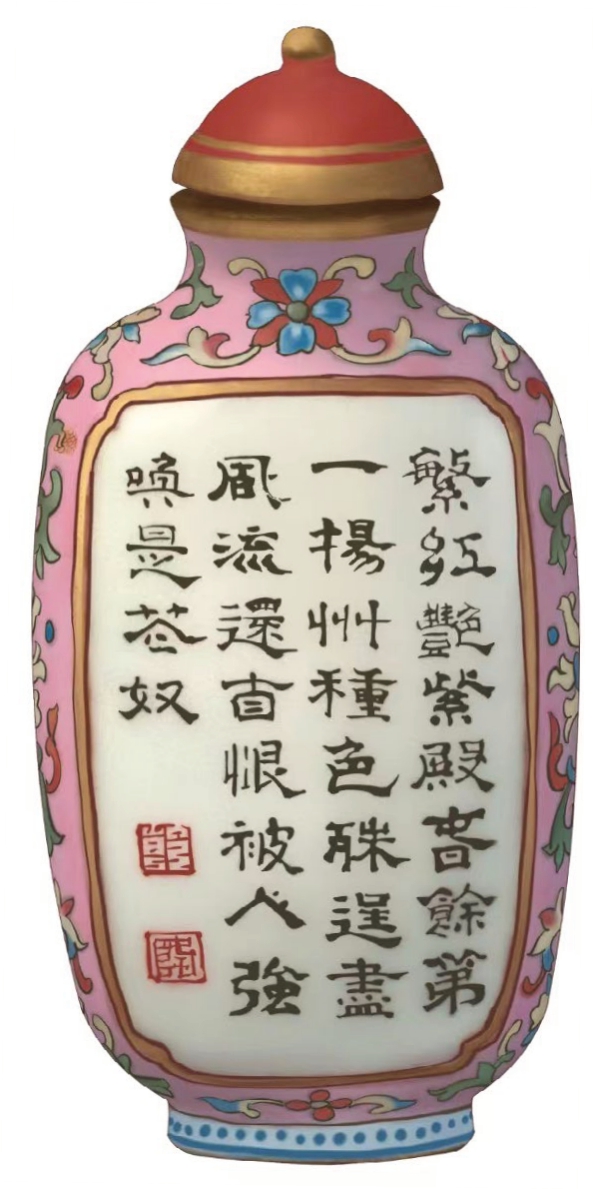 繁紅艷紫殿春餘第
一揚州種色殊逞盡
風流還恨被人強
喚是花奴